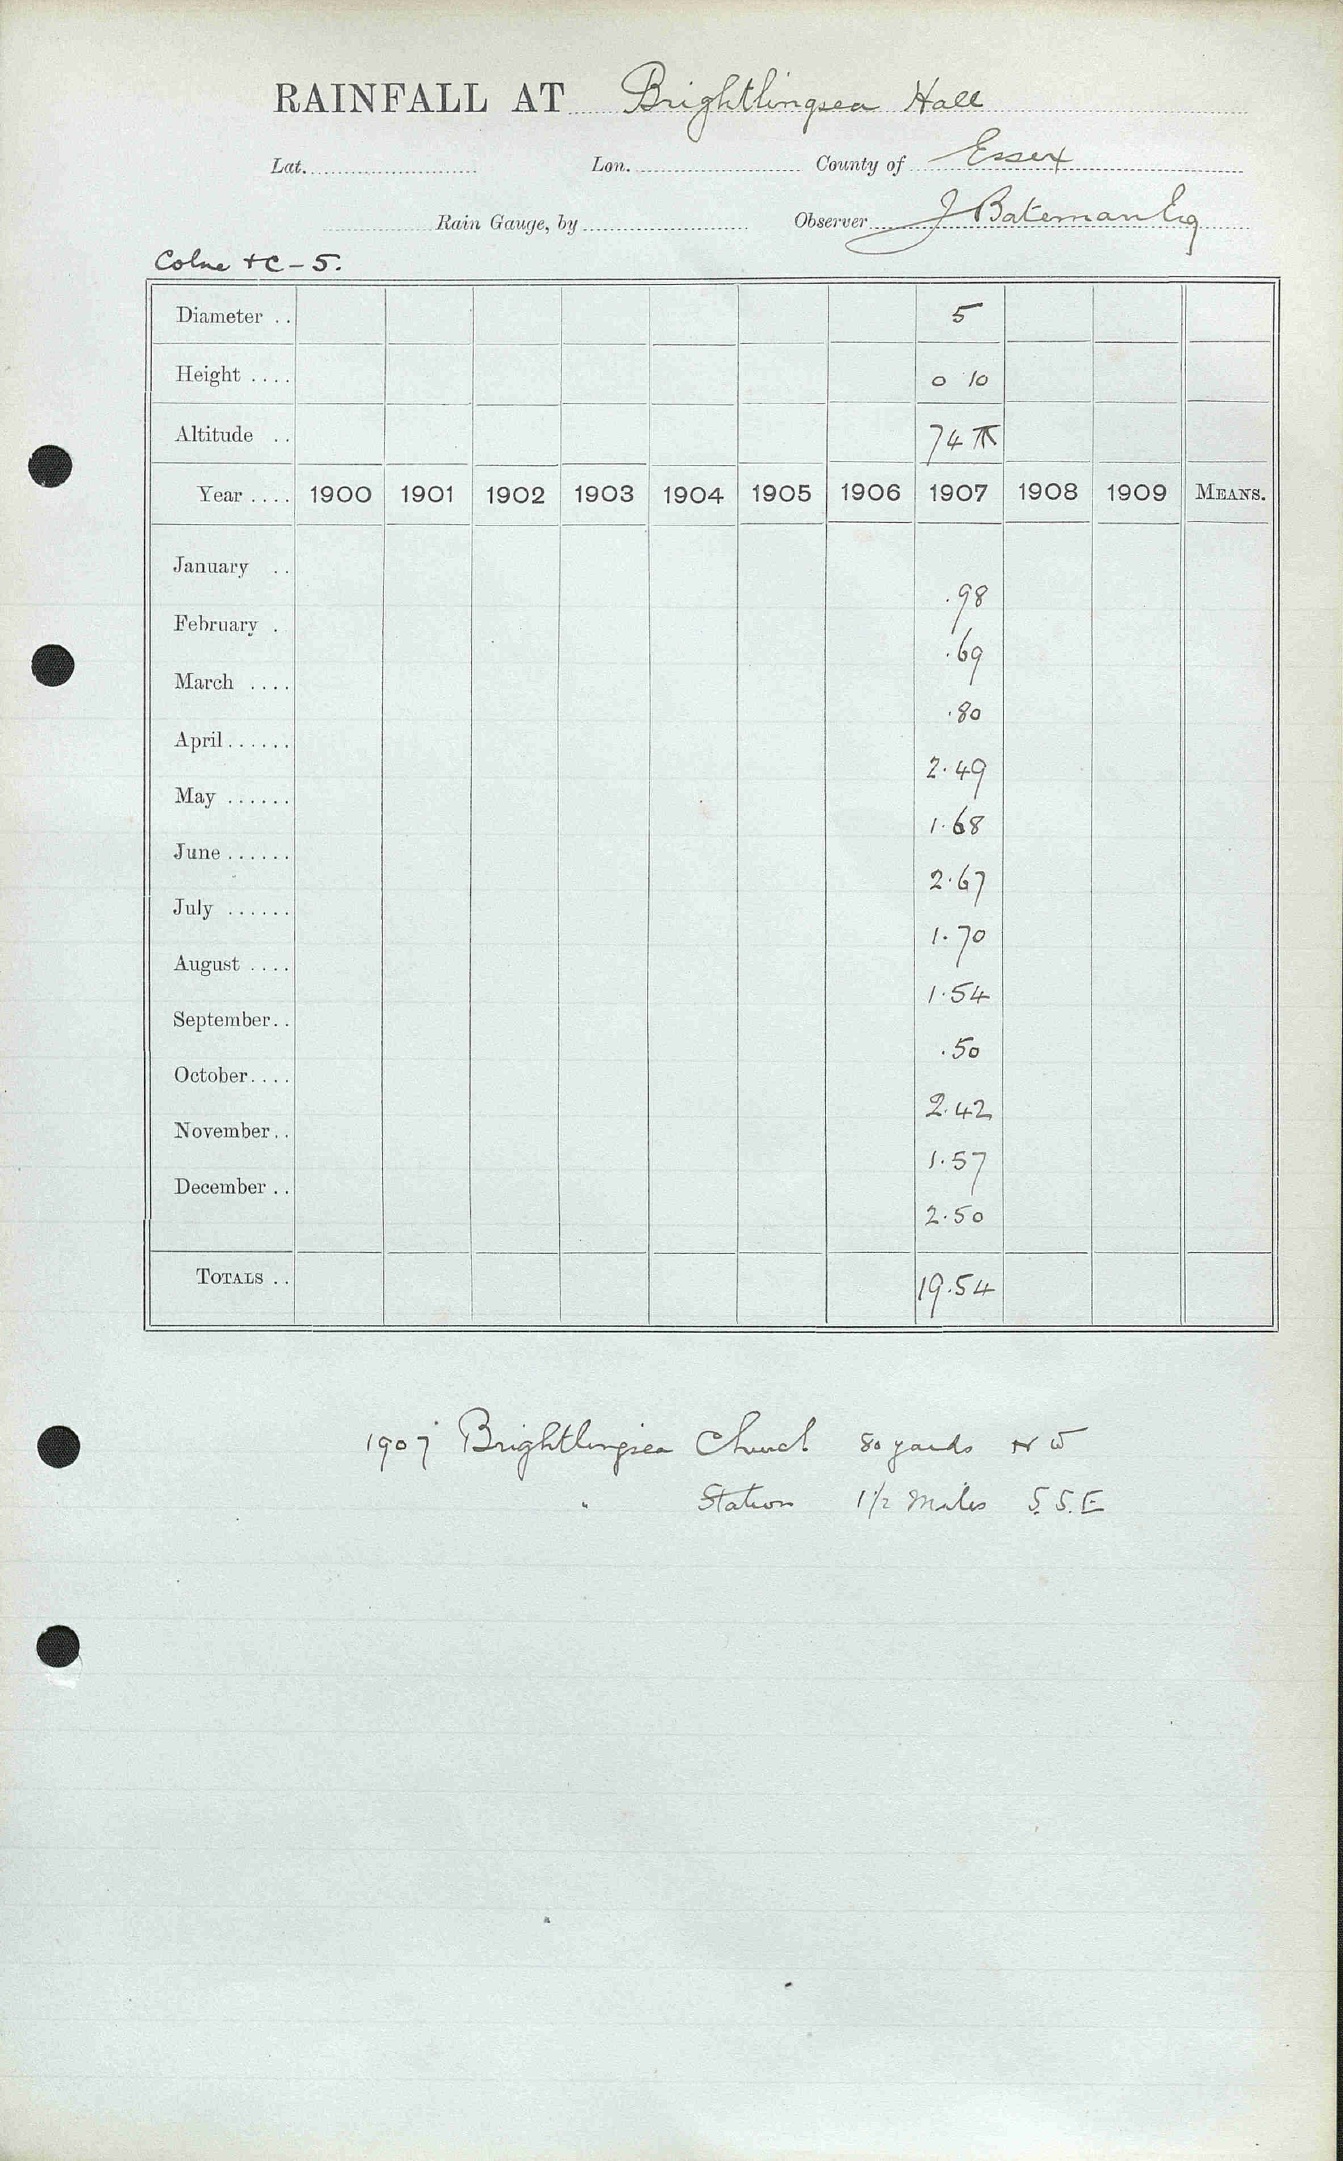 RAINFALL AT Brightlingsea Hall
Lat. Lon. County of Essex
Rain Gauge, by Observer J Bateman Esq
Colne + C - 5.
Diameter .. 5
Height .... 0 10
Altitude .. 74
Year .... 1900 1901 1902 1903 1904 1905 1906 1907 1908 1909 MEANS.
January .. .98
February . .69
March .... .80
April ...... 2.49
May ...... 1.68
June ...... 2.67
July ...... 1.70
August .... 1.54
September.. .50
October.... 2.42
November.. 1.57
December .. 2.50
TOTALS .. 19.54
1907 Brightlingsea Church 80 yards N W
" Station 1 1/2 Miles S.S.E